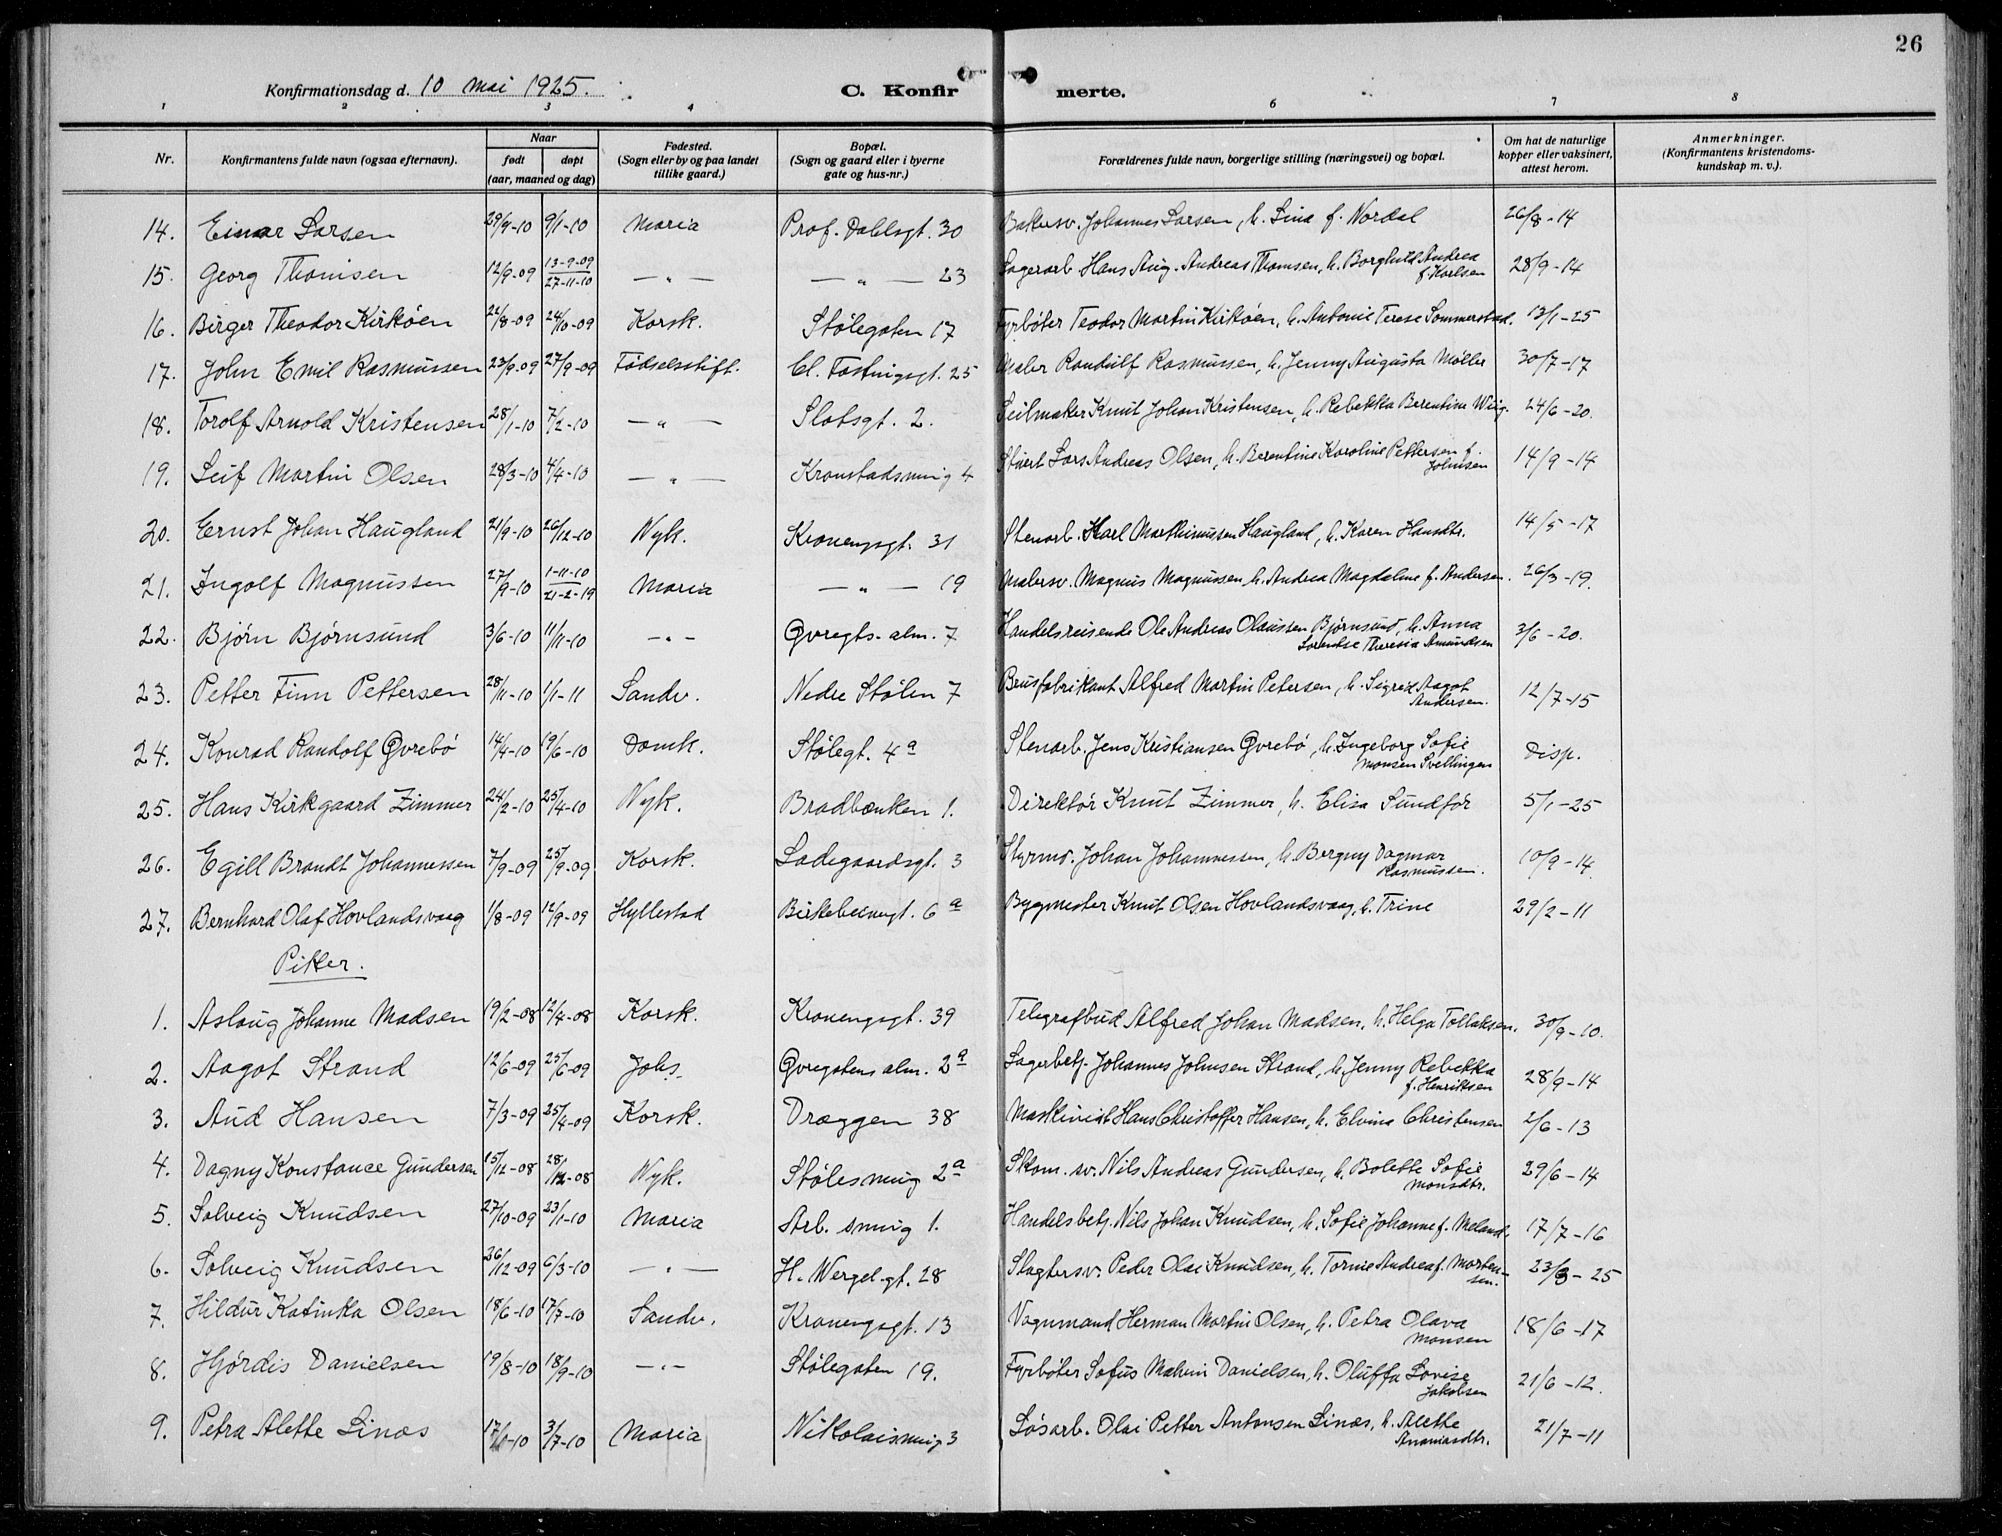 26
Konfirmationsdag d. 10 mai 1925.
C. Konfirmerte.
1 2 3 4 6 7 8
Nr. | Konfirmantens fulde navn (ogsaa efternavn). | Naar født døpt (aar, maaned og dag) | Fødested. (Sogn eller by og paa landet tillike gaard.) | Bopæl. (Sogn og gaard eller i byerne gate og hus-nr.) | Forældrenes fulde navn, borgerlige stilling (næringsvei) og bopæl. | Om hat de naturlige kopper eller vaksinert, attest herom. | Anmerkninger. (Konfirmantens kristendomskundskap m. v.).
14. Einar Larsen 29/9-10 9/1-10 Maria Prof. Dahlsgt. 30 Bakersv. Johannes Larsen, h. Lina f. Nordal 26/8-14
15. Georg Thomsen 12/9-09 13-9-09 27-11-10 — " — — " — 23 Lagerarb. Hans Aug. Andreas Thomsen, h. Borghild Andrea f. Karlsen 28/9-14
16. Birger Theodor Kirkøen 22/8-09 24/10-09 Korsk. Stølegaten 17 Fyrbøter Teodor Martin Kirkøen, h. Antonie Terese Sommerstad. 13/1-25
17. John Emil Rasmussen 23/9-09 27/9-09 Fødselsstift. Cl. Fastingsgt. 25 Maler Randulf Rasmussen, h. Jenny Augusta Møller 30/7-17
18. Torolf Arnold Kristensen 28/1-10 7/2-10 — " — Slotsgt. 2. Seilmaker Knut Johan Kristensen, h. Rebekka Berentine Wiig. 24/6-20.
19. Leif Martin Olsen 28/3-10 4/4-10 — " — Kronstadsmug 4 Stuert Lars Andreas Olsen, h. Berentine Karoline Pettersen f. Johnsen 14/9-14
20. Ernst Johan Haugland 21/9-10 26/12-10 Nyk. Kronengsgt. 31 Stenarb. Karl Mathinussen Haugland, h. Karen Hansdtr. 14/5-17
21. Ingolf Magnussen 27/9-10 1-11-10 21-2-19 Maria — " — 19 Malersv. Magnus Magnussen, h. Andrea Magdalene f. Andersen. 26/3-19.
22. Bjørn Bjørnsund 3/6-10 11/11-10 — " — Øvregts. alm. 7 Handelsreisende Ole Andreas Olaussen Bjørnsund, h. Anna Lorentse Theresia Amundsen 3/6-20.
23. Petter Finn Pettersen 28/11-10 1/1-11 Sandv. Nedre Stølen 7 Brusfabrikant Alfred Martin Petersen, h. Sigrid Aagot Andersen. 12/7-15
24. Konrad Randolf Øvrebø 14/4-10 19/6-10 Domk. Stølegt. 4a Stenarb. Jens Kristiansen Øvrebø, h. Ingeborg Sofie Monsen Svellingen Disp.
25. Hans Kirkgaard Zimmer 24/2-10 25/4-10 Nyk. Bradbænken 1. Direktør Knut Zimmer, h. Elisa Sundfør 5/1-25
26. Egill Brandt Johannessen 7/9-09 25/9-09 Korsk. Ladegaardsgt. 3 Styrmd. Johan Johannessen, h. Borgny Dagmar Rasmussen. 10/9-14
27. Bernhard Olaf Hovlandsvaag 1/8-09 12/9-09 Hyllestad Birkebeinergt. 6a Bygmester Knut Olsen Hovlandsvaag, h. Trine 29/2-11
Piker.
1. Aslaug Johanne Madsen 19/2-08 12/4-08 Korsk. Kronengsgt. 39 Telegrafbud Alfred Johan Madsen, h. Helga Tollaksen. 30/9-10.
2. Aagot Strand 12/6-09 25/6-09 Johs. Øvregatens alm. 2a Lagerbetj. Johannes Johnsen Strand, h. Jenny Rebekka f. Henriksen 28/9-14
3. Aud Hansen 7/3-09 25/4-09 Korsk. Dræggen 38 Maskinist Hans Christoffer Hansen, h. Elvina Christensen 2/6-13
4. Dagny Konstance Gundersen 15/12-08 28/12-08 Nyk. Stølesmug 2a Skom. sv. Nils Andreas Gundersen, h. Bolette Sofie Monsdtr. 29/6-14
5. Solveig Knudsen 27/10-09 23/1-10 Maria Arb. smug 1. Handelsbetj. Nils Johan Knudsen, h. Sofie Johanne f. Meland. 17/7-16
6. Solveig Knudsen 26/12-09 6/3-10 — " — H. Wergel. gt. 28 Slagtersv. Peder Olai Knudsen, h. Tomie Andrea f. Mortensen. 23/3-25
7. Hildur Katinka Olsen 18/6-10 17/7-10 Sandv. Kronengsgt. 13 Vognmand Herman Martin Olsen, h. Petra Olava Monsen 18/6-17
8. Hjørdis Danielsen 19/8-10 18/9-10 — " — Stølegaten 19. Fyrbøter Sofus Danielsen, h. Oluffa Lovise Jakobsen 21/6-12.
9. Petra Alette Linæs 17/ -10 3/7-10 Maria Nikolaismug 3 Løsarb. Olai Petter Antonsen Linæs, h. Alette Ananiasdtr. 21/7-11